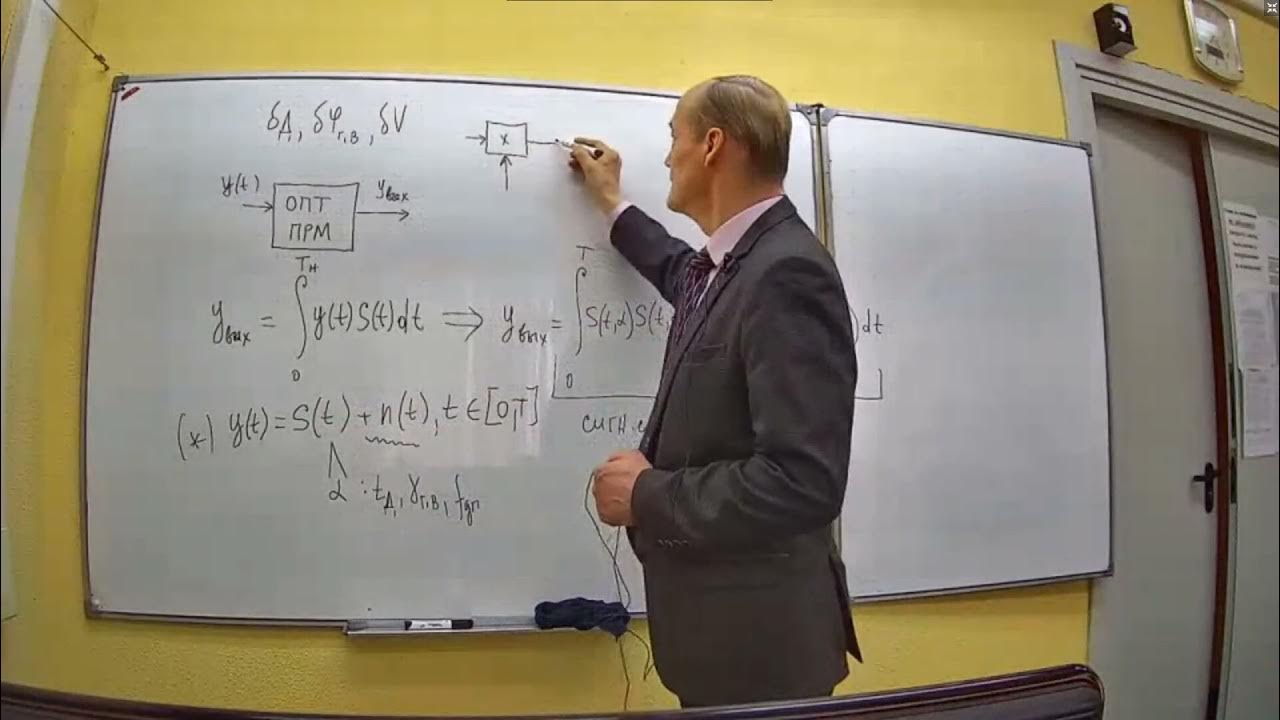 δД, δφг,в, δV
x
y(t)
yвых
ОПТ
ПРМ
yвых = ∫₀^Tн y(t)S(t)dt ⟹ yвых = ∫₀^T S(t,α)S(t, )dt
сигн.
(*) y(t) = S(t) + n(t), t ∈ [0,T]
Λ
α : tД, γг,в, fдп